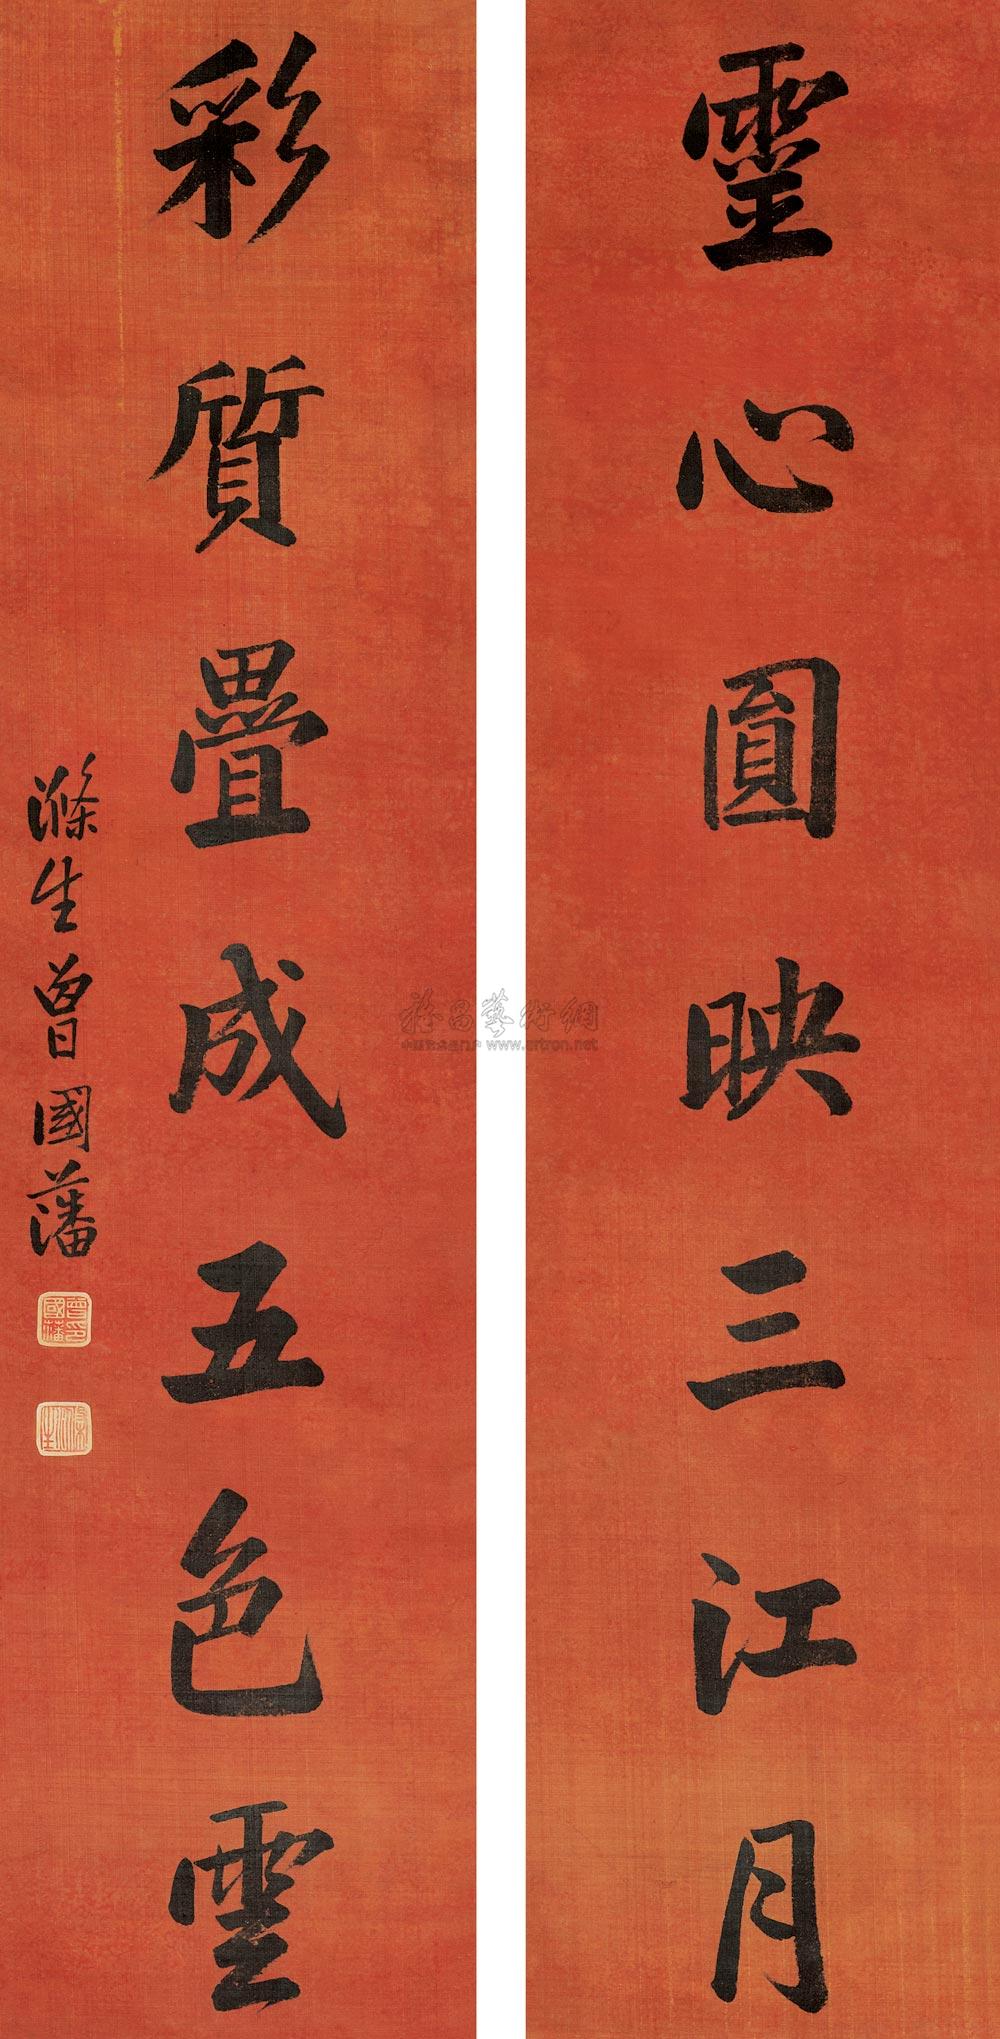 靈心圓映三江月
彩質疊成五色雲
滌生曾國藩
曾國藩印
滌生
www.artron.net